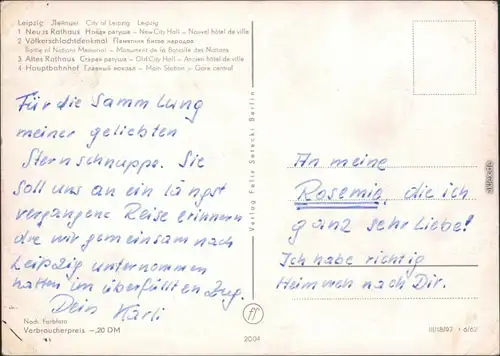 Leipzig Лейпциг City of Leipzig Leipzig
1 Neues Rathaus Новая ратуша – New City Hall – Nouvel hôtel de ville
2 Völkerschlachtdenkmal Памятник битве народов
Battle of Nations Memorial – Monument de la Bataille des Nations
3 Altes Rathaus Старая ратуша – Old City Hall – Ancien hôtel de ville
4 Hauptbahnhof Главный вокзал – Main Station – Gare central
Für die Sammlung
meiner geliebten
Sternschnuppe. Sie
soll uns an ein längst
vergangene Reise erinnern
die wir gemeinsam nach
Leipzig unternommen
hatten im überfüllten Zug.
Dein Karli
Noch: Farbfoto
Verbraucherpreis –,20 DM
Verlag Felix Setecki Berlin
ff
2004
An meine
Rosemie, die ich
ganz sehr Liebe!
Ich habe richtig
Heimweh nach Dir.
III/18/97 1 6/62